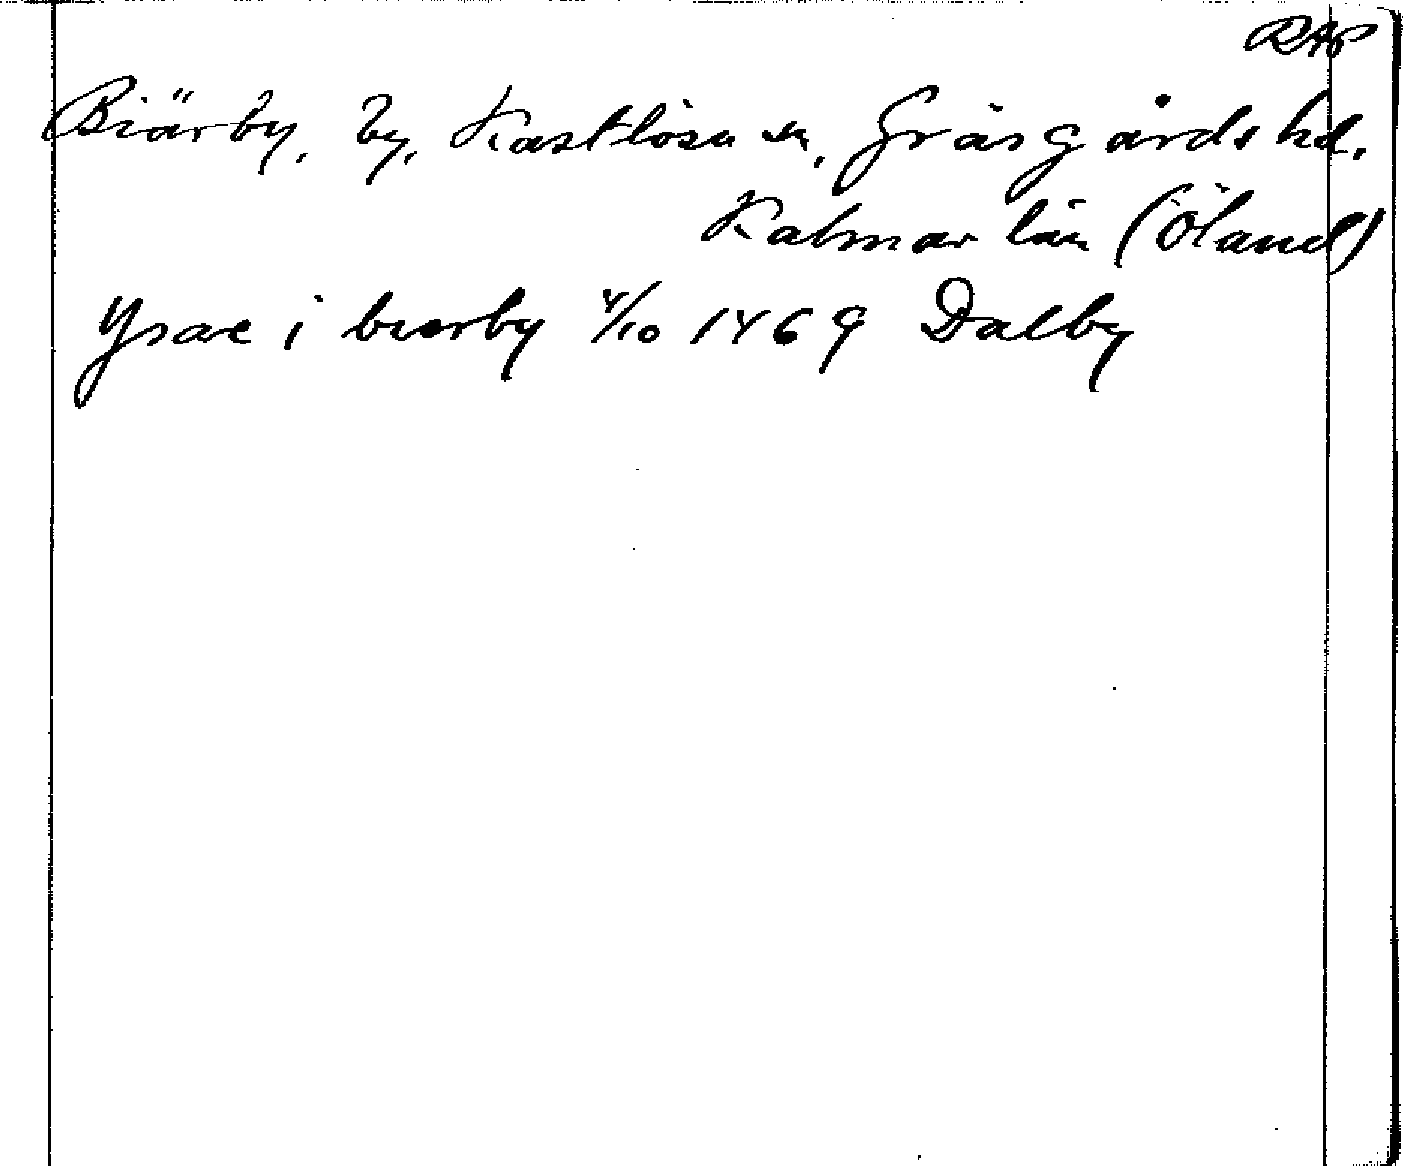 RAp
Biärby, by, Kastlösa sn, Gräsgårds hd.
Kalmar län (Öland)
Ysac i bierby 4/10 1469 Dalby